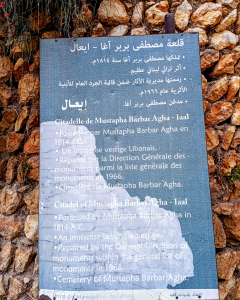 قلعة مصطفى بربر آغا - إيعال
• تملكها مصطفى بربر آغا سنة ١٨١٤م.
• أثر تراثي لبناني عظيم
• رممتها مديرية الآثار ضمن قائمة الجرد العام للأبنية
الأثرية عام ١٩٦٦م
• مدفن مصطفى بربر آغا
إيعال
Citadelle de Mustapha Barbar Agha - Iaal
Mustapha Barbar Agha en
1814 A.C.
• Un immense vestige Libanais.
• Réparée par la Direction Générale des
monuments parmi la liste générale des
monuments en 1966.
• Cimetière de Mustapha Barbar Agha.
Citadel of Mustapha Barbar Agha - Iaal
by Mustapha Barbar Agha in
1814 A.C.
• An immense
• Repaired by the General Direction of
monuments within the general list of
monuments in 1966.
• Cemetery of Mustapha Barbar Agha.